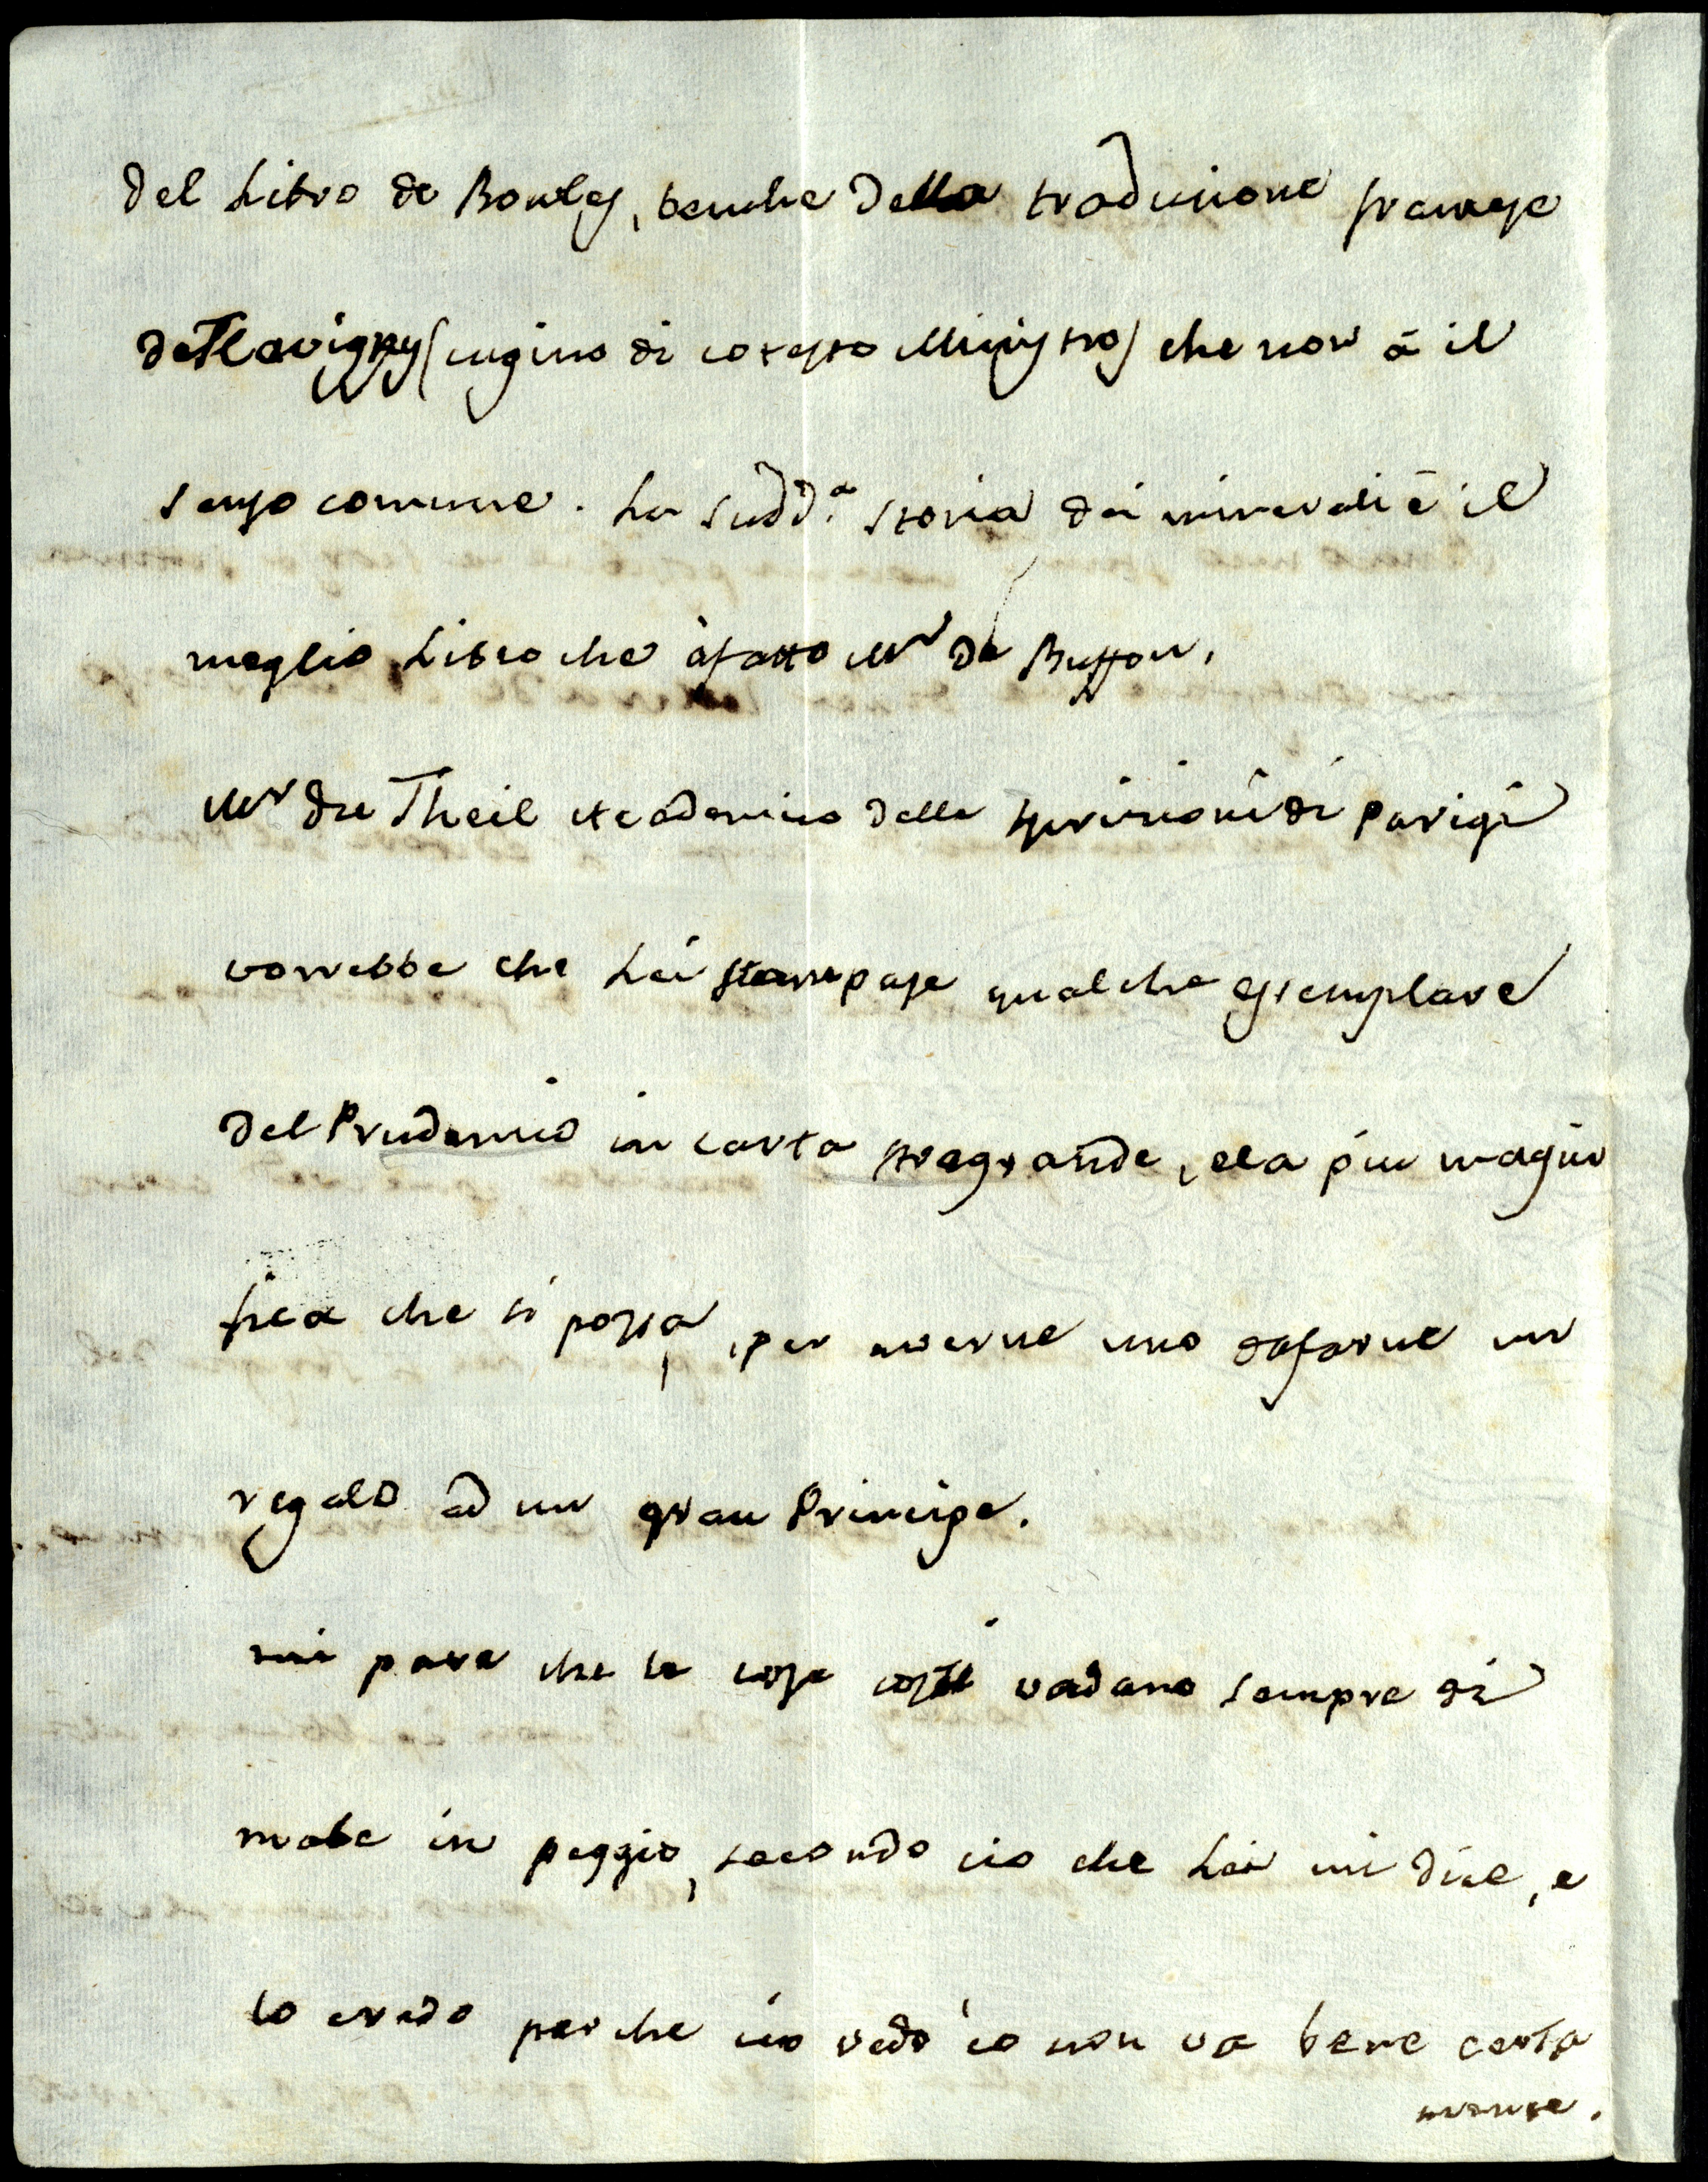 del Libro di Bowles, benche della traduzione francese
de Flavigny (cugino di cotesto Ministro) che non à il
senso comune. La sudd.a storia dei minerali è il
meglio Libro che à fatto Mr de Buffon.
Mr du Theil Academico delle Iscrizioni di Parigi
vorrebbe che Lei stampase qualche essemplare
del Prudenzio in carta stragrande, e la piu magni
fica che si possa, per averne uno da farne un
regalo ad un gran Principe.
mi pare che le cose costi vadano sempre di
male in peggio, secondo cio che Lei mi dice, e
lo credo perche cio vedo io non va bene certa
mente.